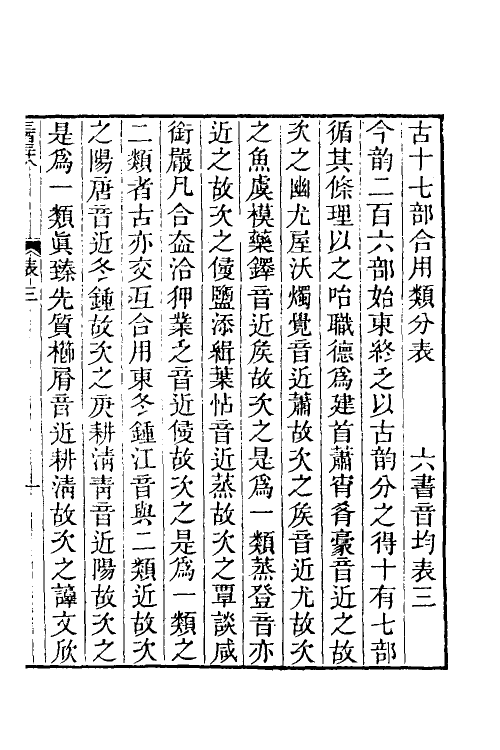 古十七部合用類分表　六書音均表三
今韵二百六部始東終乏以古韵分之得十有七部
循其條理以之咍職德爲建首蕭宵肴豪音近之故
次之幽尤屋沃燭覺音近蕭故次之矦音近尤故次
之魚虞模藥鐸音近矦故次之是爲一類蒸登音亦
近之故次之侵鹽添緝葉怗音近蒸故次之覃談咸
銜嚴凡合盍洽狎業乏音近侵故次之是爲一類之
二類者古亦交互合用東冬鍾江音與二類近故次
之陽唐音近冬鍾故次之庚耕淸靑音近陽故次之
是爲一類眞臻先質櫛屑音近耕淸故次之諄文欣
表三